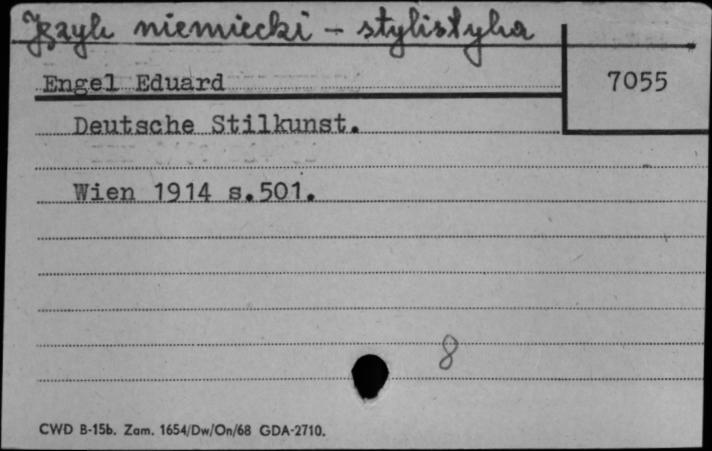 Język niemiecki - stylistyka
Engel Eduard
7055
Deutsche Stilkunst.
Wien 1914 s.501.
8
CWD B-15b. Zam. 1654/Dw/On/68 GDA-2710.